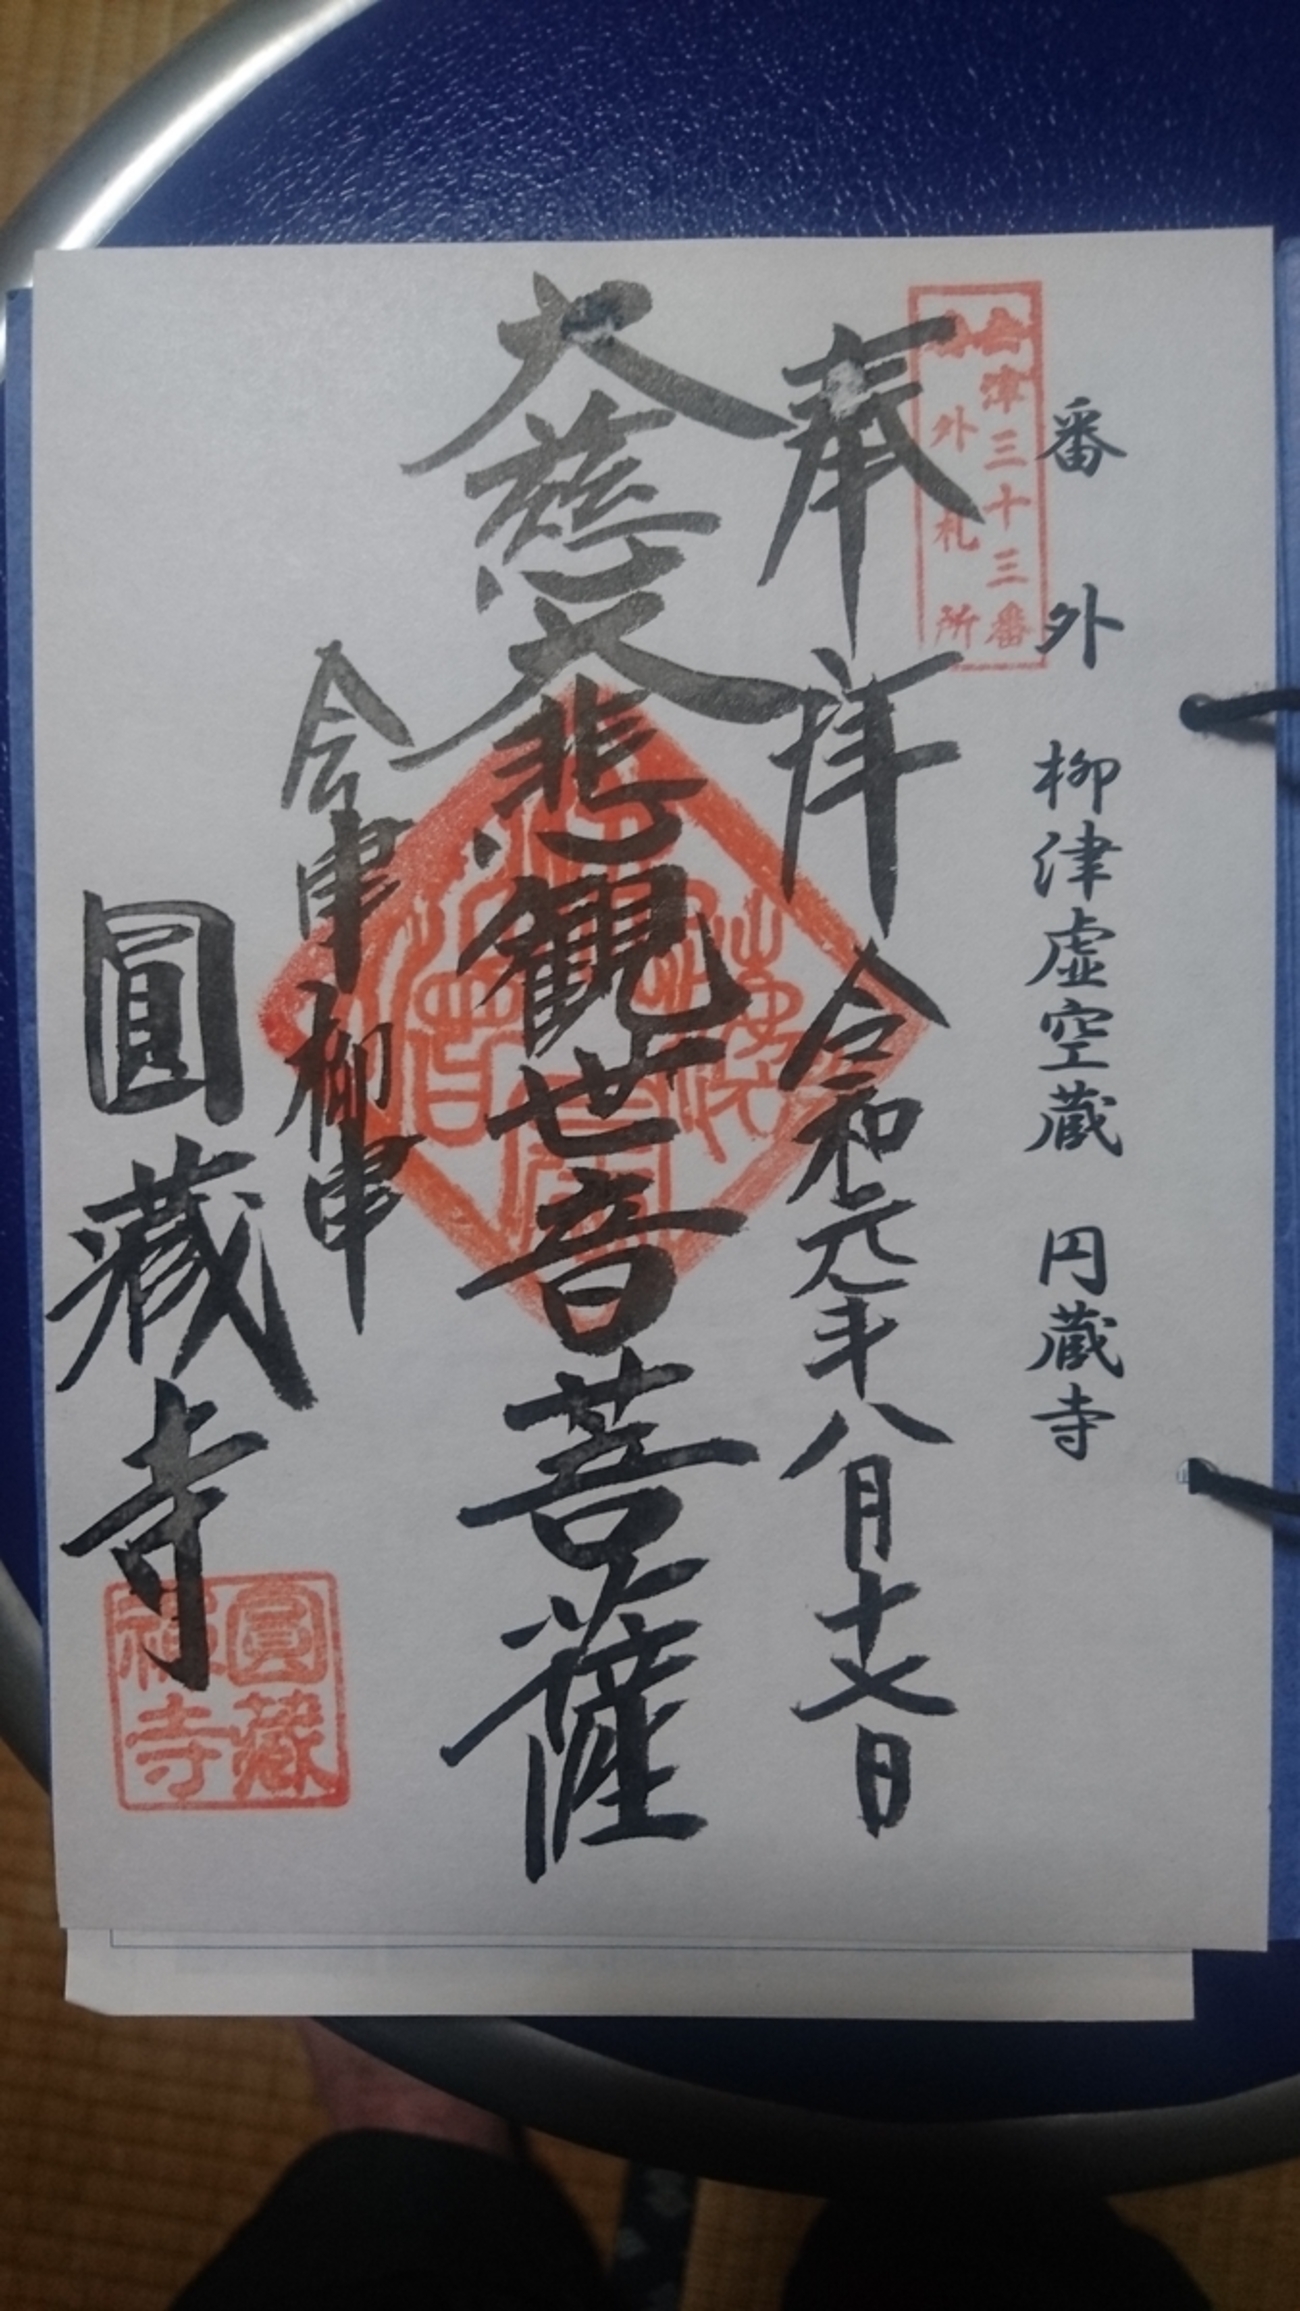 番外 柳津虚空蔵 円蔵寺
会津三十三番
番外札所
奉拝 令和元年八月十七日
大慈大悲観世音菩薩
会津柳津
圓藏寺
圓藏
禅寺